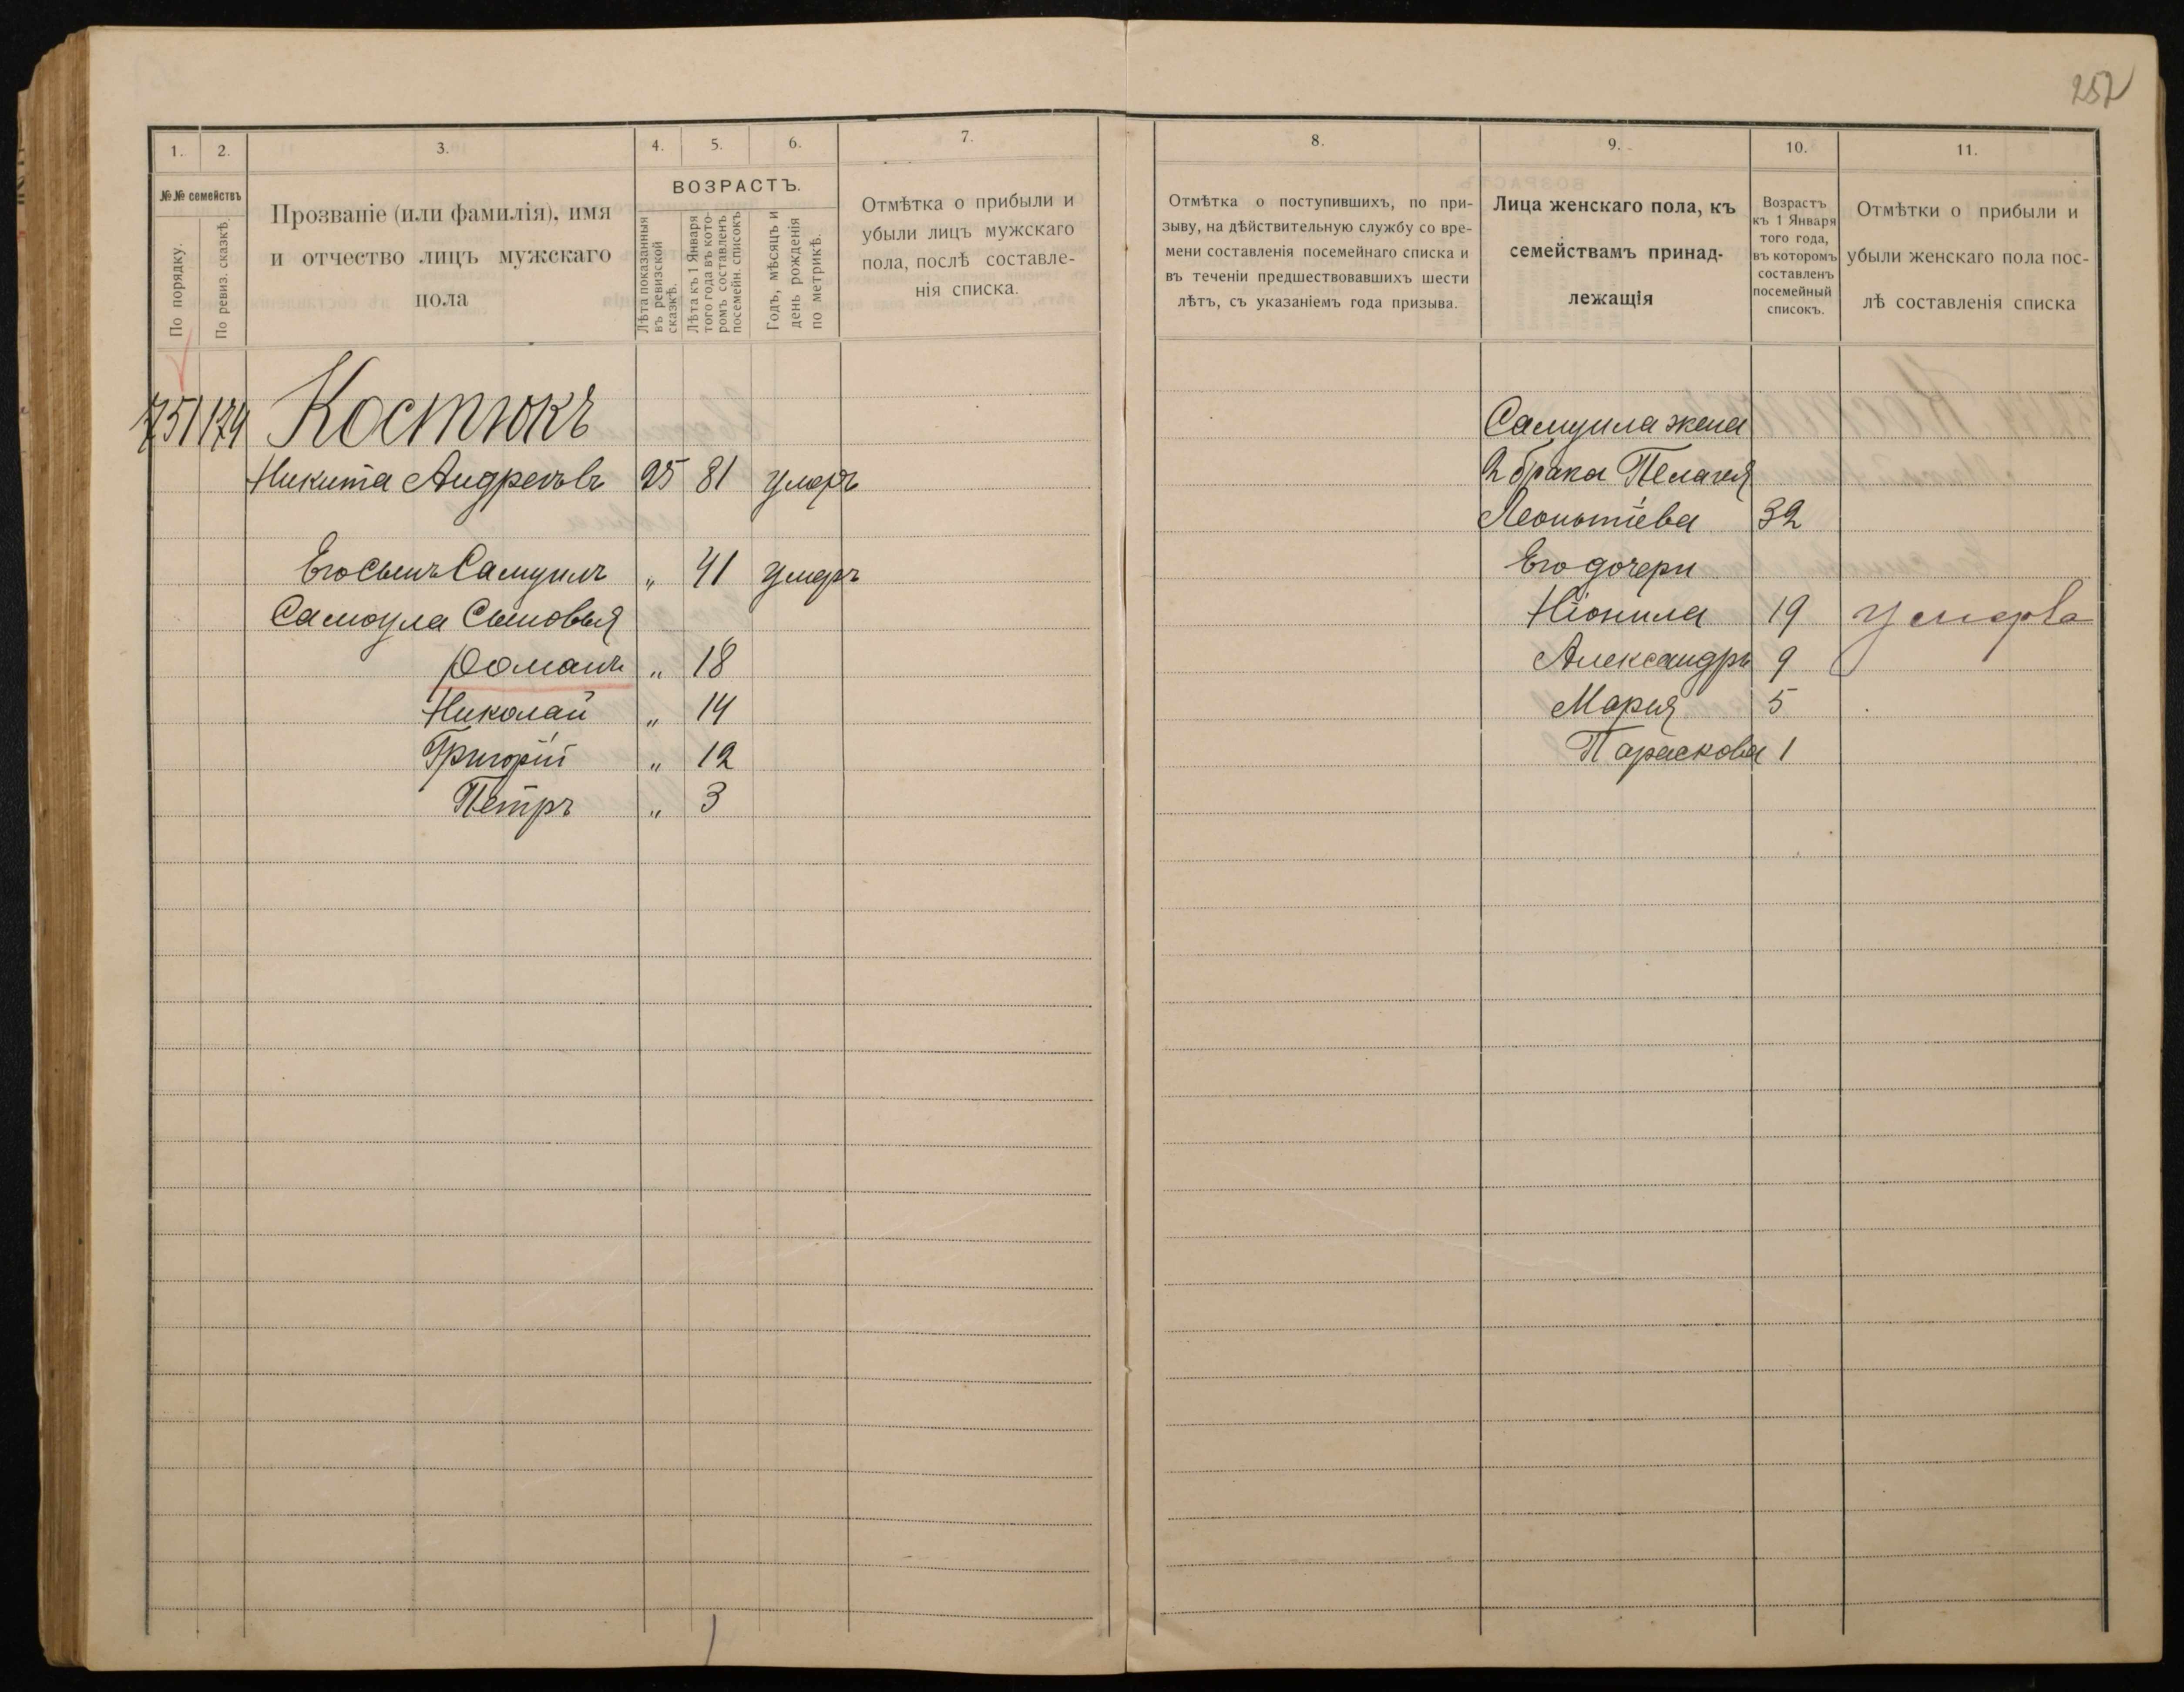 252
1. 2. 3. 4. 5. 6. 7.
№№ семействъ
По порядку.
По ревиз. сказкѣ.
Прозваніе (или фамилія), имя
и отчество лицъ мужскаго
пола
ВОЗРАСТЪ.
Лѣта показанныя
въ ревизской
сказкѣ.
Лѣта къ 1 Января
того года въ кото-
ромъ составленъ
посемейн. списокъ
Годъ, мѣсяцъ и
день рожденія
по метрикѣ.
Отмѣтка о прибыли и
убыли лицъ мужскаго
пола, послѣ составле-
нія списка.
751 174 Костюкъ
Никита Андреевъ 25 81 умеръ
Его сынъ Самуилъ „ 41 умеръ
Самоула Сыновья
Романъ „ 18
Николай „ 14
Григорій „ 12
Петръ „ 3
8. 9. 10. 11.
Отмѣтка о поступившихъ, по при-
зыву, на дѣйствительную службу со вре-
мени составленія посемейнаго списка и
въ теченіи предшествовавшихъ шести
лѣтъ, съ указаніемъ года призыва.
Лица женскаго пола, къ
семействамъ принад-
лежащія
Возрастъ
къ 1 Января
того года,
въ которомъ
составленъ
посемейный
списокъ.
Отмѣтки о прибыли и
убыли женскаго пола пос-
лѣ составленія списка
Самуила жена
2 брака Пелагея
Леонтіева 32
Его дочери
Ніонила 19 умерла
Александра 9
Мария 5
Параскова 1